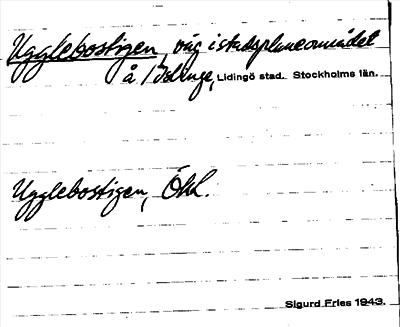 Ugglebostigen, väg i stadsplaneområdet
å Islinge, Lidingö stad. Stockholms län.
Ugglebostigen, Ökl.
Sigurd Fries 1943.